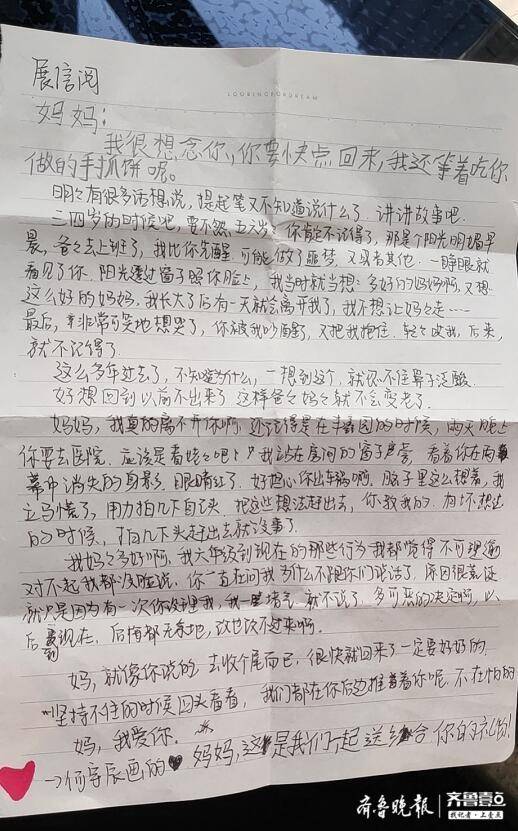 LOOKINGFORDREAM
展信阅
妈妈：
我很想念你，你要快点回来，我还等着吃你
做的手抓饼呢。
明明有很多话想说，提起笔又不知道说什么了。讲讲故事吧。
三四岁的时候吧，要不然五六岁，你肯定不记得了，那是个阳光明媚早
晨，爸爸去上班了，我比你先醒，可能做了噩梦，又没有其他，一睁眼就
看见了你，阳光透过窗子照你脸上，我当时就当想：多好的妈妈啊，又想
这么好的妈妈，我长大了后有一天就会离开我了，我不想让妈妈走……
最后，非常可笑地想哭了，你被我吵醒了，又把我抱住，轻轻哄我，后来，
就不记得了。
这么多年过去了，不知道为什么，一想到这个，就忍不住鼻子泛酸
好想回到以前不出来了 这样爸爸妈妈就不会变老了。
妈妈，我真的离不开你啊，还记得是在丰 园的时候，两天晚上
你要去医院，应该是看姥姥吧，我站在房间的窗子旁，看着你在雨
幕中消失的身影，眼睛红了。好担心你出车祸啊，脑子里这么想着，我
立马慌了，用力拍几下自己头，把这些想法赶出去，你教我的，有坏想法
的时候，拍几下头赶出去就没事了。
我妈妈多好啊，我六年级到现在的那些行为我都觉得不可理喻
对不起我都没脸说，你一直在问我为什么不跟你们说话了，原因很荒诞
就只是因为有一次你没理我，我一赌气，就不说了，多可恶的决定啊，以
后到现在，后悔都无余地，改也改不过来啊。
妈，就像你说的，去收个尾而已，很快就回来了一定要好好的。
坚持不住的时候回头看看，我们都在你后边推着你呢，不在怕的
妈，我爱你。
→何宇辰画的 妈妈，这是我们一起送给你的礼物！
齐鲁晚报
齐鲁壹点
找记者·上壹点